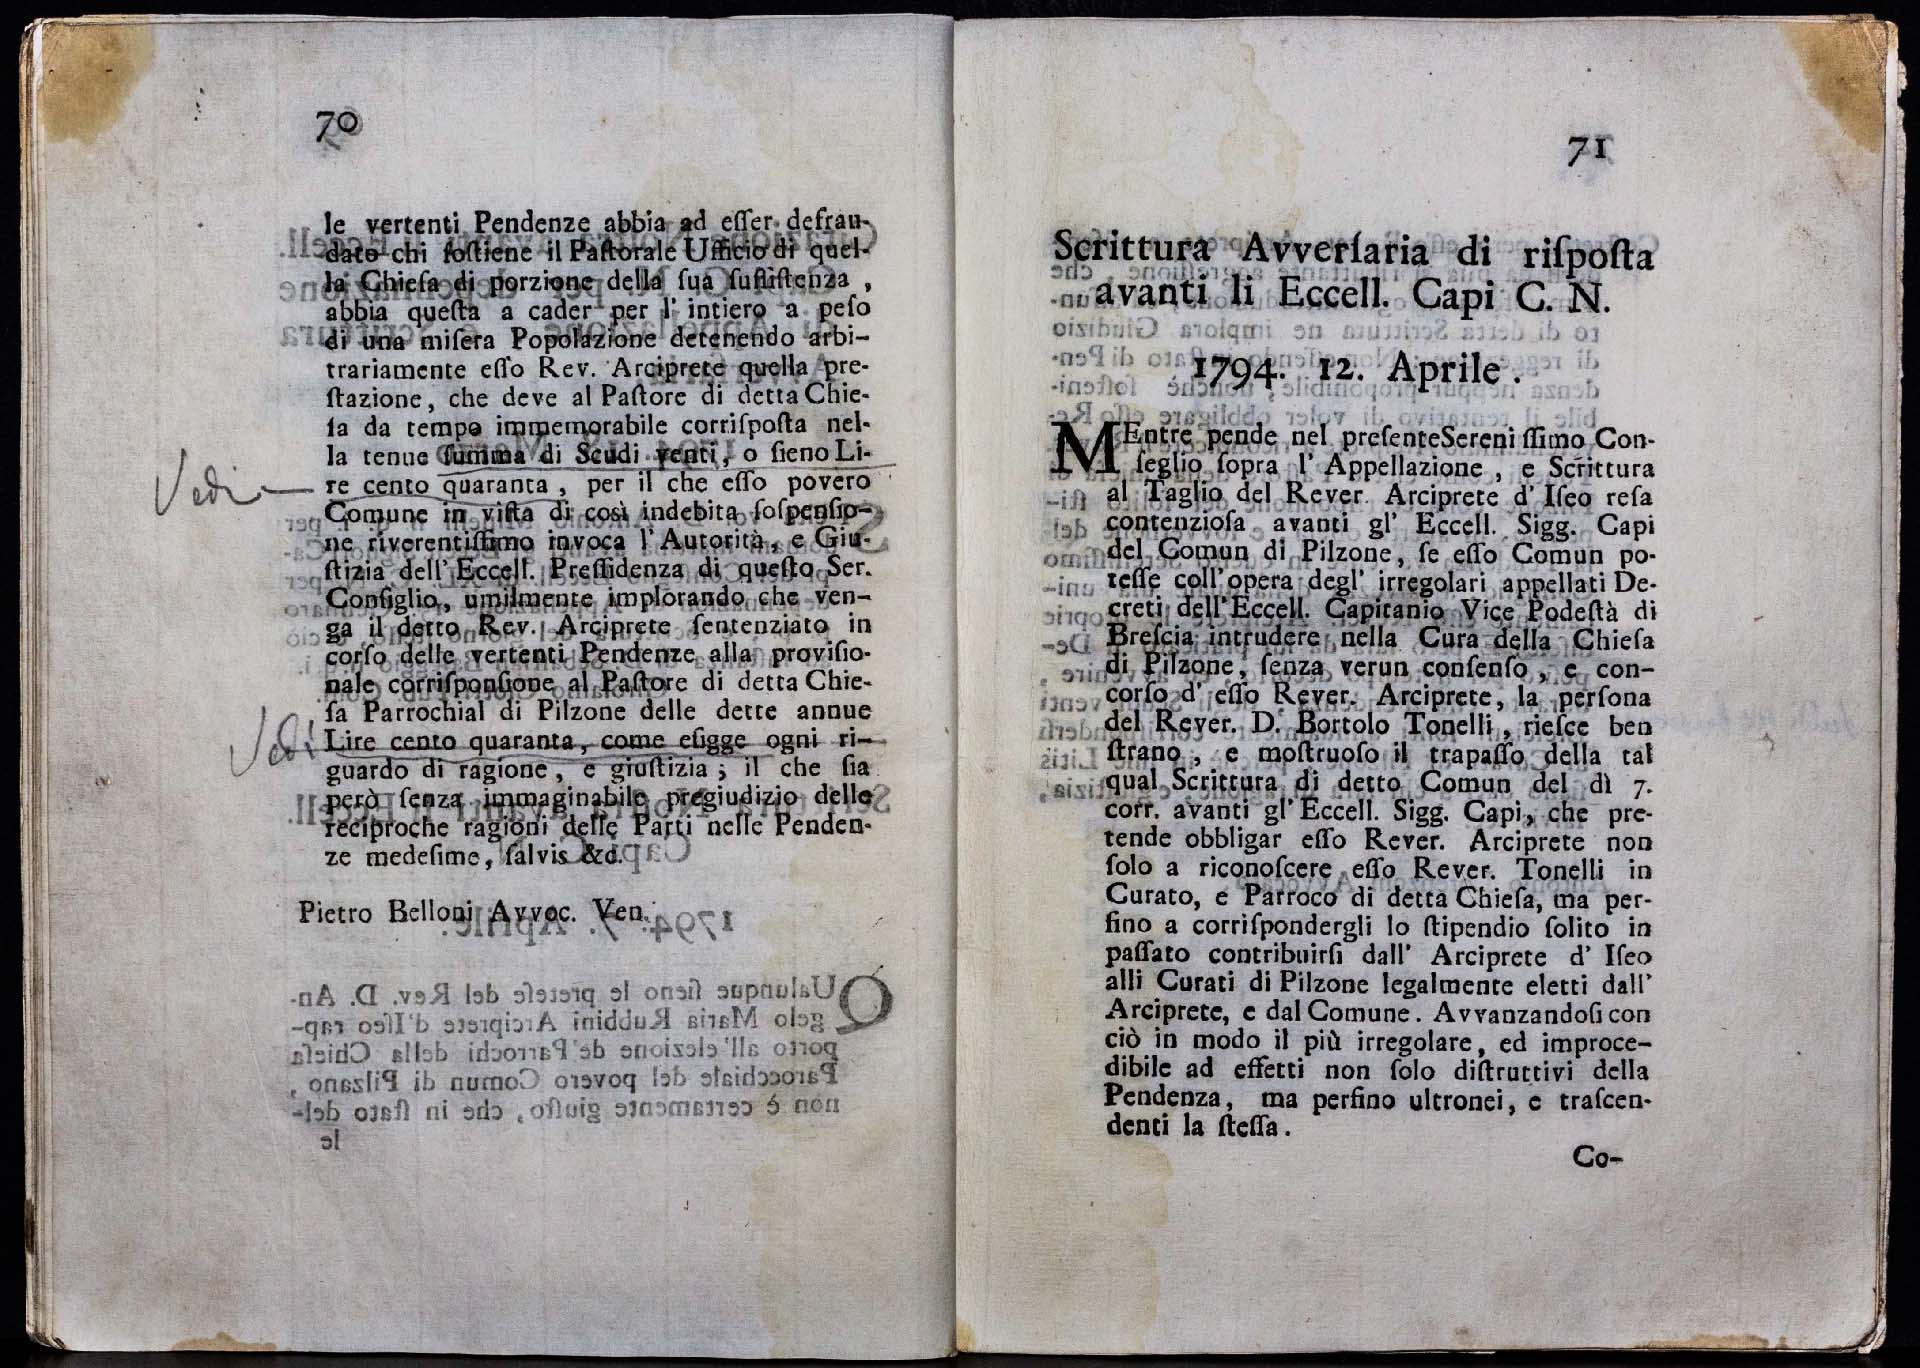 70
le vertenti Pendenze abbia ad eſſer defrau-
dato chi ſoſtiene il Paſtorale Ufficio di quel-
la Chieſa di porzione della ſua ſuſſiſtenza,
abbia queſta a cader per l' intiero a peſo
di una miſera Popolazione detenendo arbi-
trariamente eſſo Rev. Arciprete quella pre-
ſtazione, che deve al Paſtore di detta Chie-
ſa da tempo immemorabile corriſpoſta nel-
la tenue ſumma di Scudi venti, o ſieno Li-
Vedi
re cento quaranta, per il che eſſo povero
Comune in viſta di così indebita ſoſpenſio-
ne riverentiſſimo invoca l' Autorità, e Giu-
ſtizia dell' Eccell. Preſſidenza di queſto Ser.
Conſiglio, umilmente implorando che ven-
ga il detto Rev. Arciprete ſentenziato in
corſo delle vertenti Pendenze alla proviſio-
nale corriſponſione al Paſtore di detta Chie-
ſa Parrochial di Pilzone delle dette annue
Vedi
Lire cento quaranta, come eſigge ogni ri-
guardo di ragione, e giuſtizia; il che ſia
però ſenza immaginabile pregiudizio delle
reciproche ragioni delle Parti nelle Penden-
ze medeſime, ſalvis &c.
Pietro Belloni Avvoc. Ven.
71
Scrittura Avverſaria di riſpoſta
avanti li Eccell. Capi C. N.
1794. 12. Aprile.
MEntre pende nel preſente Sereniſſimo Con-
ſeglio ſopra l' Appellazione, e Scrittura
al Taglio del Rever. Arciprete d' Iſeo reſa
contenzioſa avanti gl' Eccell. Sigg. Capi
del Comun di Pilzone, ſe eſſo Comun po-
teſſe coll' opera degl' irregolari appellati De-
creti dell' Eccell. Capitanio Vice Podeſtà di
Breſcia intrudere nella Cura della Chieſa
di Pilzone, ſenza verun conſenſo, e con-
corſo d' eſſo Rever. Arciprete, la perſona
del Rever. D. Bortolo Tonelli, rieſce ben
ſtrano, e moſtruoſo il trapaſſo della tal
qual Scrittura di detto Comun del dì 7.
corr. avanti gl' Eccell. Sigg. Capi, che pre-
tende obbligar eſſo Rever. Arciprete non
ſolo a riconoſcere eſſo Rever. Tonelli in
Curato, e Parroco di detta Chieſa, ma per-
fino a corriſpondergli lo ſtipendio ſolito in
paſſato contribuirſi dall' Arciprete d' Iſeo
alli Curati di Pilzone legalmente eletti dall'
Arciprete, e dal Comune. Avvanzandoſi con
ciò in modo il più irregolare, ed improce-
dibile ad effetti non ſolo diſtruttivi della
Pendenza, ma perfino ultronei, e traſcen-
denti la ſteſſa.
Co-